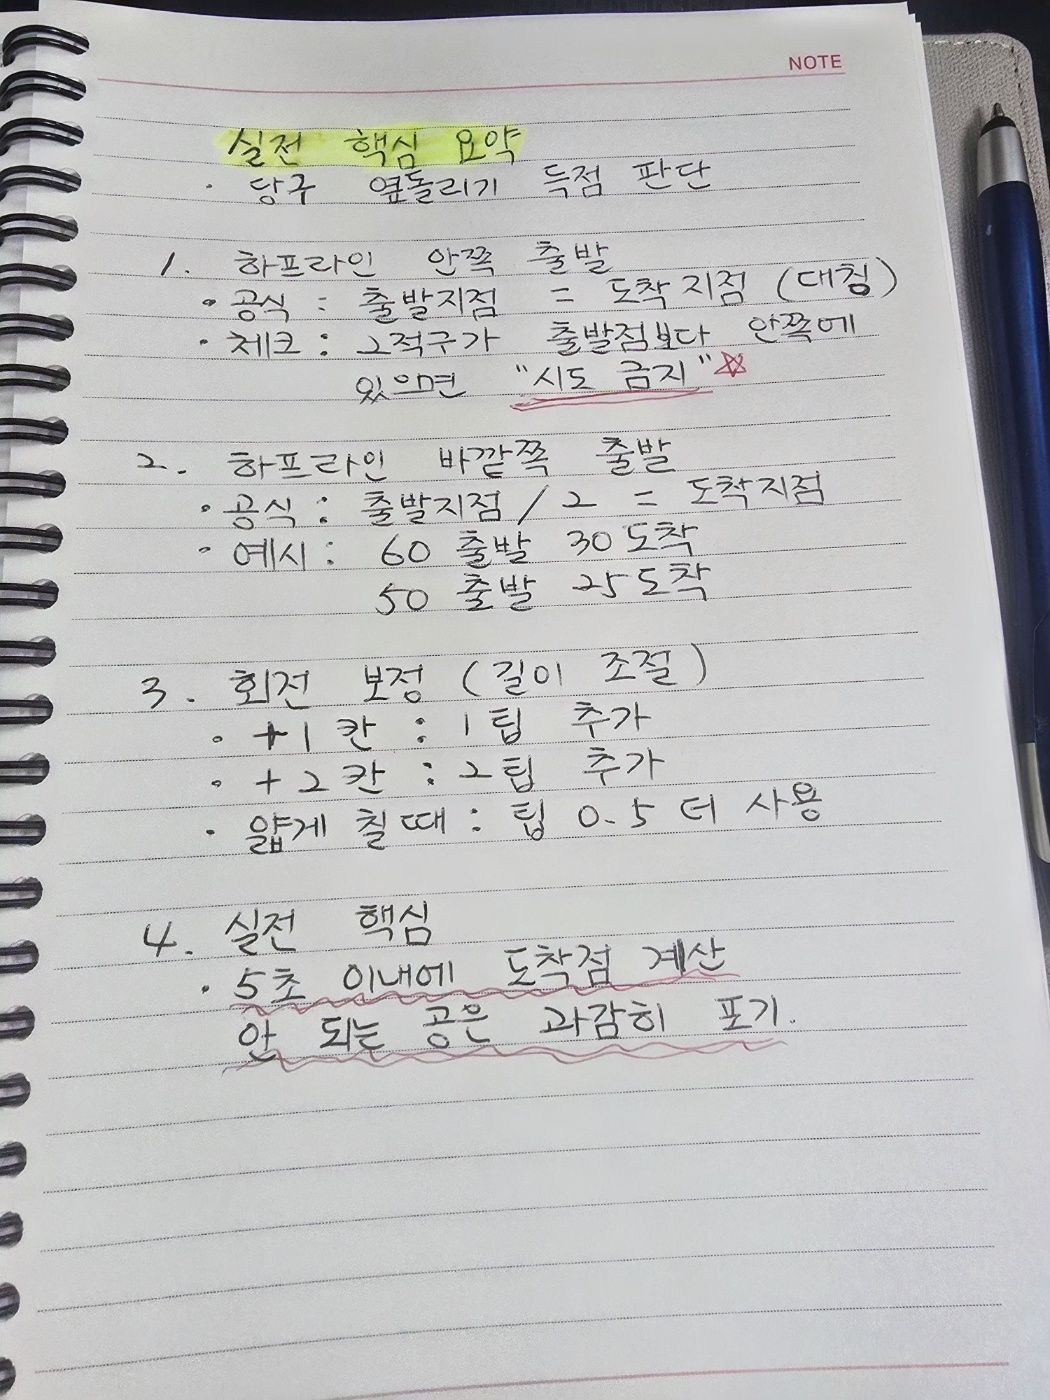 NOTE
실전 핵심 요약
· 당구 옆돌리기 득점 판단
1. 하프라인 안쪽 출발
· 공식 : 출발지점 = 도착지점 (대칭)
· 체크 : 2적구가 출발점보다 안쪽에
있으면 "시도 금지"☆
2. 하프라인 바깥쪽 출발
· 공식 : 출발지점 / 2 = 도착지점
· 예시 : 60 출발 30 도착
50 출발 25 도착
3. 회전 보정 (길이 조절)
· +1 칸 : 1 팁 추가
· +2 칸 : 2 팁 추가
· 얇게 칠때 : 팁 0.5 더 사용
4. 실전 핵심
· 5초 이내에 도착점 계산
안 되는 공은 과감히 포기.